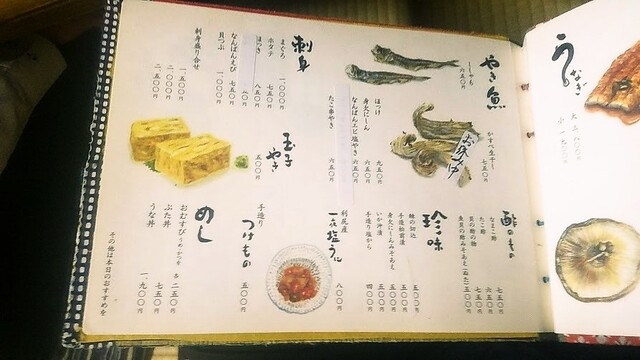 やき魚
ししゃも
六五〇円
かすべ生干し
七五〇円
お休み中
ほっけ
九五〇円
身欠にしん
六五〇円
なんばんエビ塩やき
六五〇円
たこ串やき
六五〇円
刺身
まぐろ
一、〇〇〇円
ホタテ
七五〇円
ほっき
八五〇円
なんばんえび
七五〇円
貝つぶ
一、〇〇〇円
刺身盛り合せ
一、五〇〇円
二、〇〇〇円
二、五〇〇円
玉子やき
五〇〇円
酢のもの
なまこ酢
七五〇円
たこ酢
六五〇円
貝の酢の物
七五〇円
魚貝の酢みそあえ(ぬた)
五五〇円
珍味
鮭の切込
五〇〇円
手造松前漬
五〇〇円
身欠にしんみそあえ
五〇〇円
いか沖漬
五〇〇円
手造り塩から
四〇〇円
利尻産
一夜塩うに
八〇〇円
手造り
つけもの
五〇〇円
めし
おむすび
各 二五〇円
ぶた丼
七五〇円
うな丼
一、九〇〇円
その他は本日のおすすめを
うなぎ